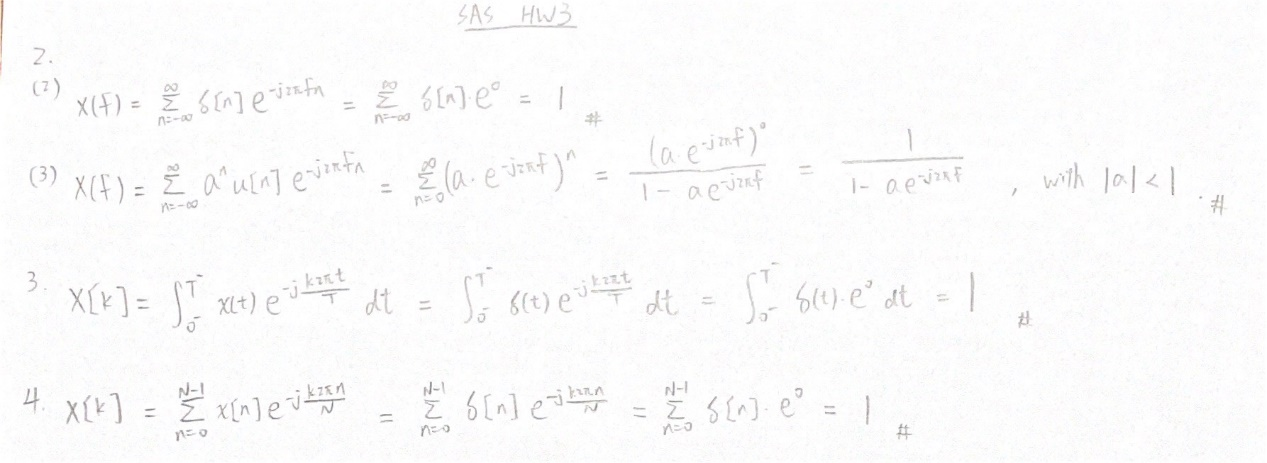 SAS HW3
2.
(2) X(f) = ∑_{n=-∞}^{∞} δ[n] e^{-j2πfn} = ∑_{n=-∞}^{∞} δ[n]·e^0 = 1 #
(3) X(f) = ∑_{n=-∞}^{∞} a^n u[n] e^{-j2πfn} = ∑_{n=0}^{∞} (a·e^{-j2πf})^n = (a·e^{-j2πf})^0 / (1 - ae^{-j2πf}) = 1 / (1 - ae^{-j2πf}) , with |a| < 1 . #
3. X[k] = ∫_{0^-}^{T^-} x(t) e^{-j k2πt/T} dt = ∫_{0^-}^{T^-} δ(t) e^{-j k2πt/T} dt = ∫_{0^-}^{T^-} δ(t)·e^0 dt = 1 #
4. X[k] = ∑_{n=0}^{N-1} x[n] e^{-j k2πn/N} = ∑_{n=0}^{N-1} δ[n] e^{-j k2πn/N} = ∑_{n=0}^{N-1} δ[n]·e^0 = 1 #